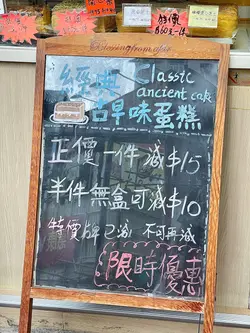 經典 Classic
ancient cake
古早味蛋糕
正價一件減$15
半件無盒可減$10
特價牌已減 不可再減
限時優惠